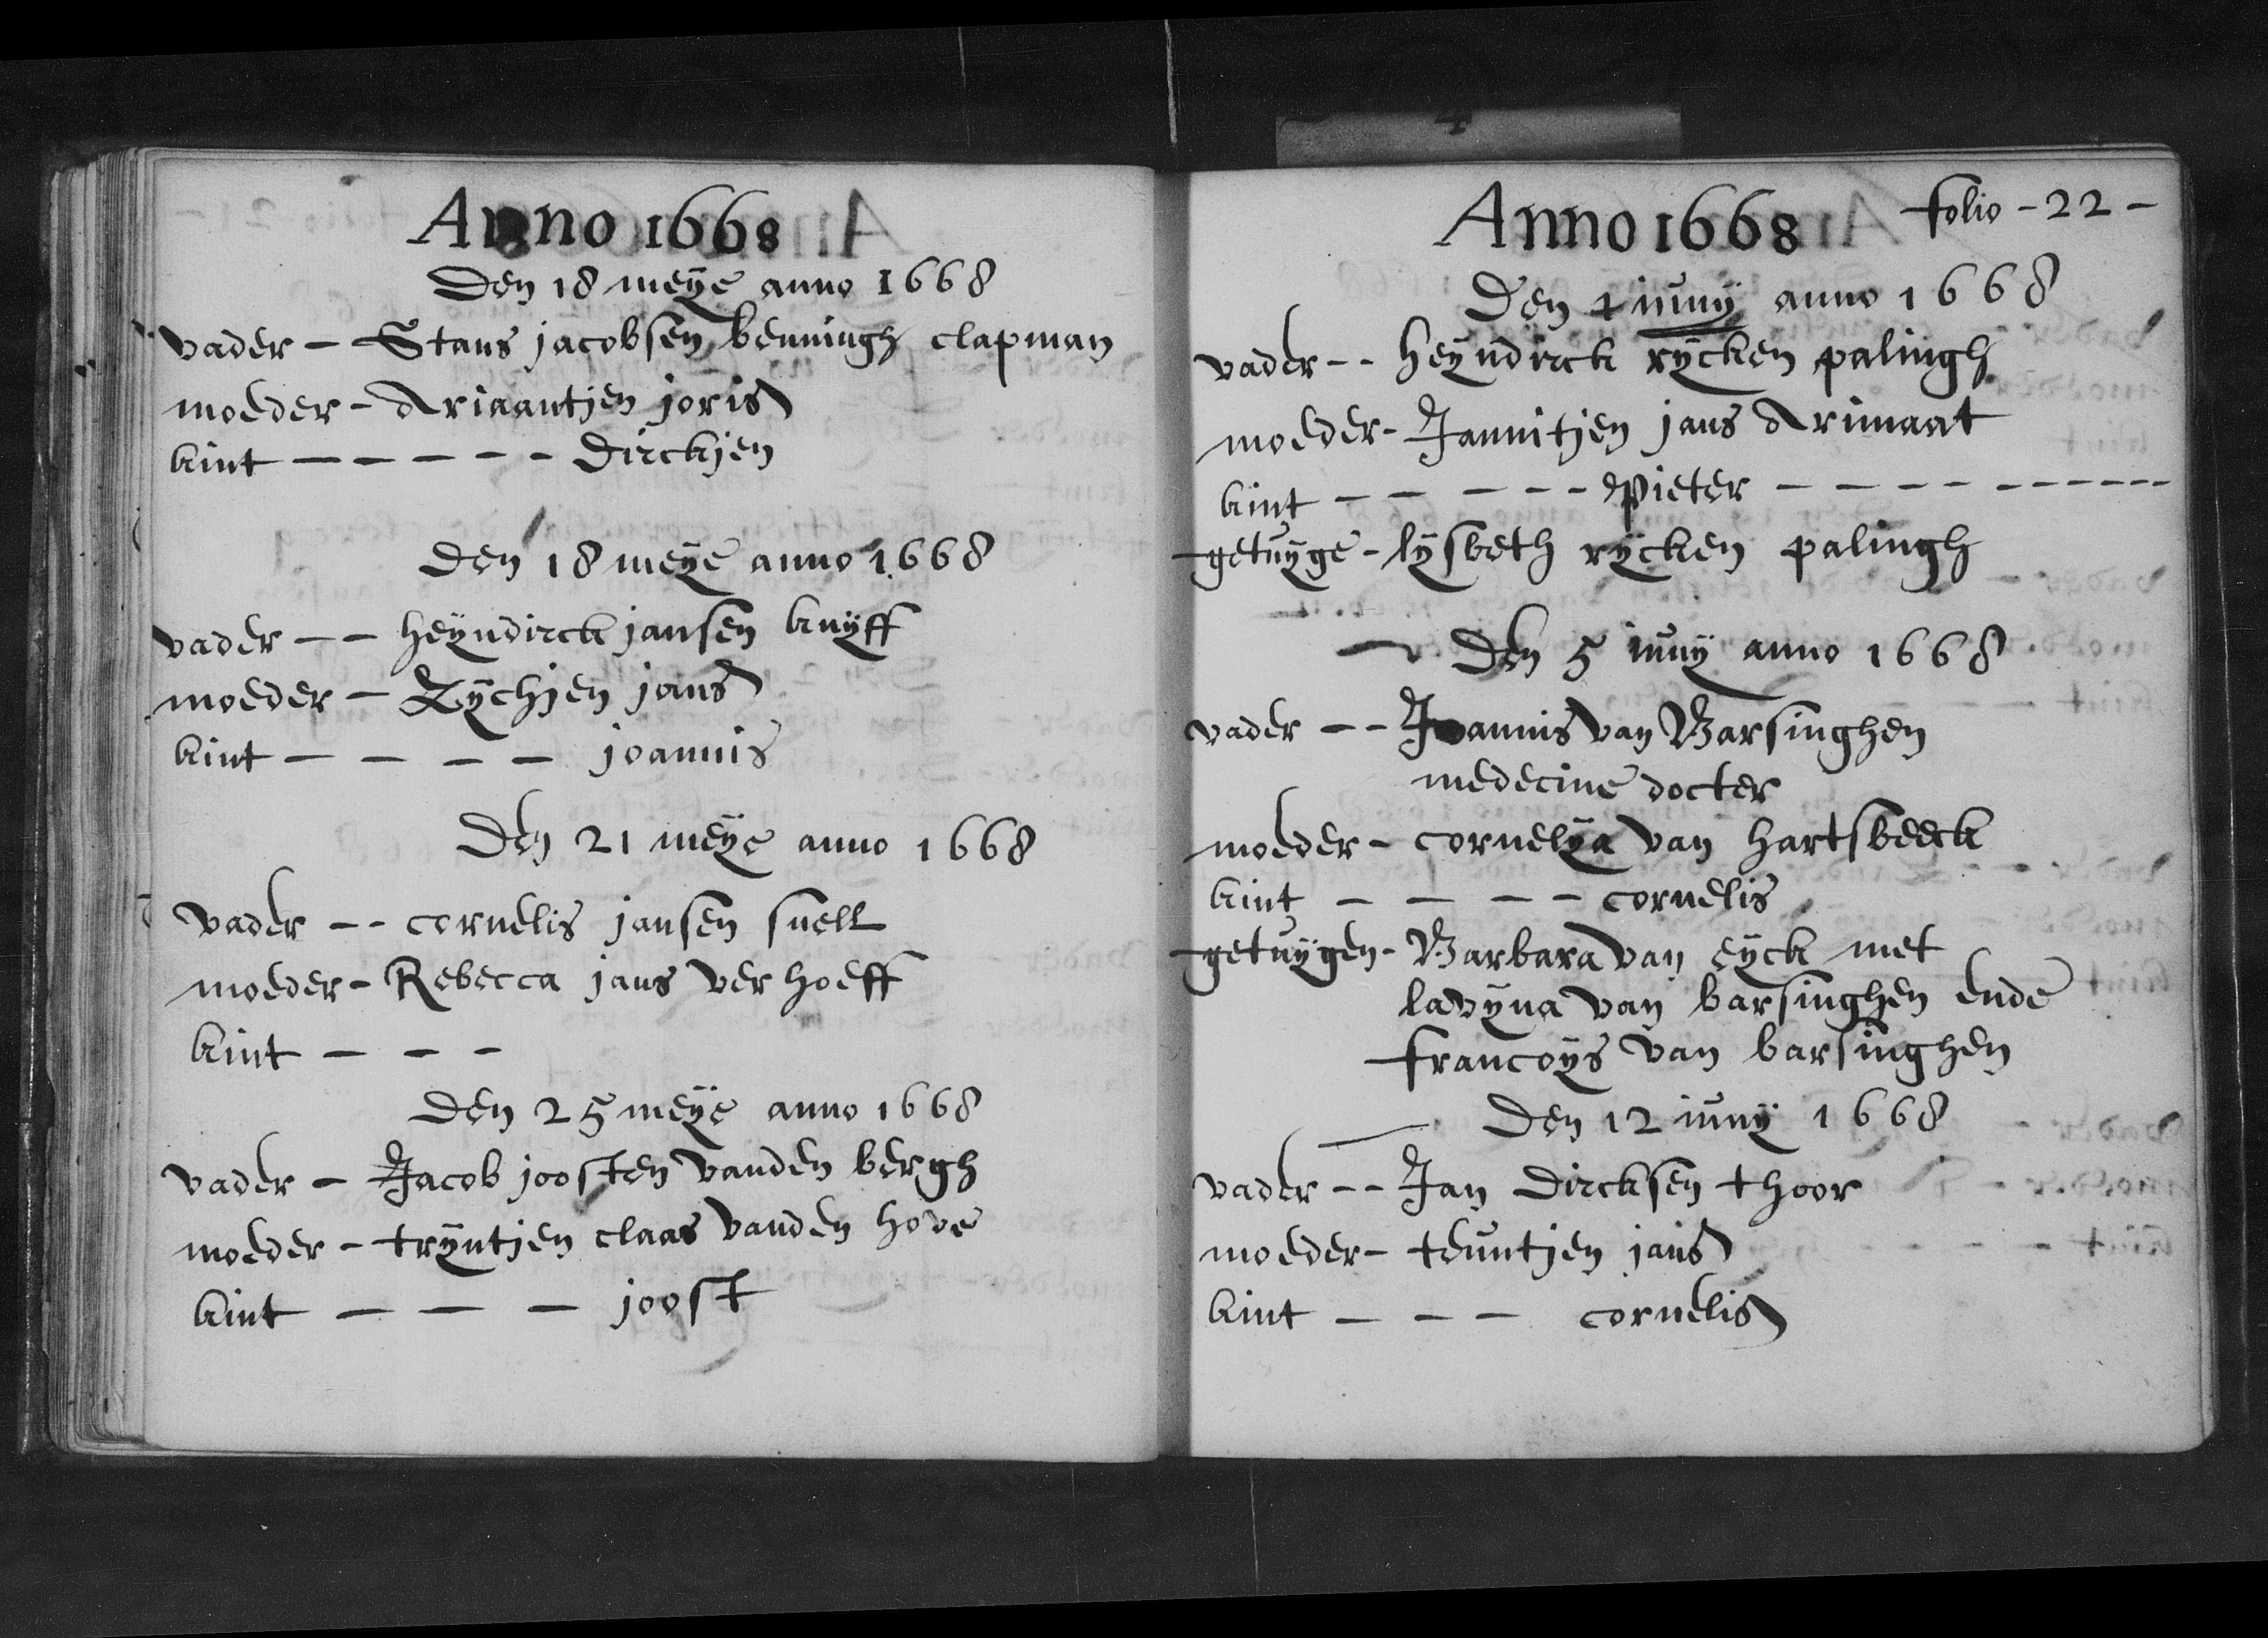 Anno 1668
Den 18 meÿe anno 1668
vader - Staus jacobsen benningh clapman
moeder - Ariaantjen joris
kint - - - - - Dirckjen
Den 18 meÿe anno 1668
vader - - heÿndirck jansen knÿff
moeder - Lÿchjen jans
kint - - - - joannis
Den 21 meÿe anno 1668
vader - - cornelis jansen snell
moeder - Rebecca jans ver hoeff
kint - - -
Den 25 meÿe anno 1668
vader - Jacob joosten vanden bergh
moeder - trÿntjen claas vanden hove
kint - - - joost
Anno 1668 folio - 22 -
Den 1 iunÿ anno 1668
vader - - heÿndirck rÿcken palingh
moeder - Jannitjen jans Arimaat
kint - - - - - Pieter - - - - - - - - - -
getuÿge - lÿsbeth rÿcken palingh
Den 5 iunÿ anno 1668
vader - - Joannis van Barsinghen
medecine docter
moeder - cornelÿa van hartsbeeck
kint - - - - cornelis
getuÿgen - Barbara van eÿck met
lavÿna van barsinghen ende
francoÿs van barsinghen
Den 12 iunÿ 1668
vader - - Jan Dircksen thoor
moeder - teuntjen jans
kint - - - cornelis